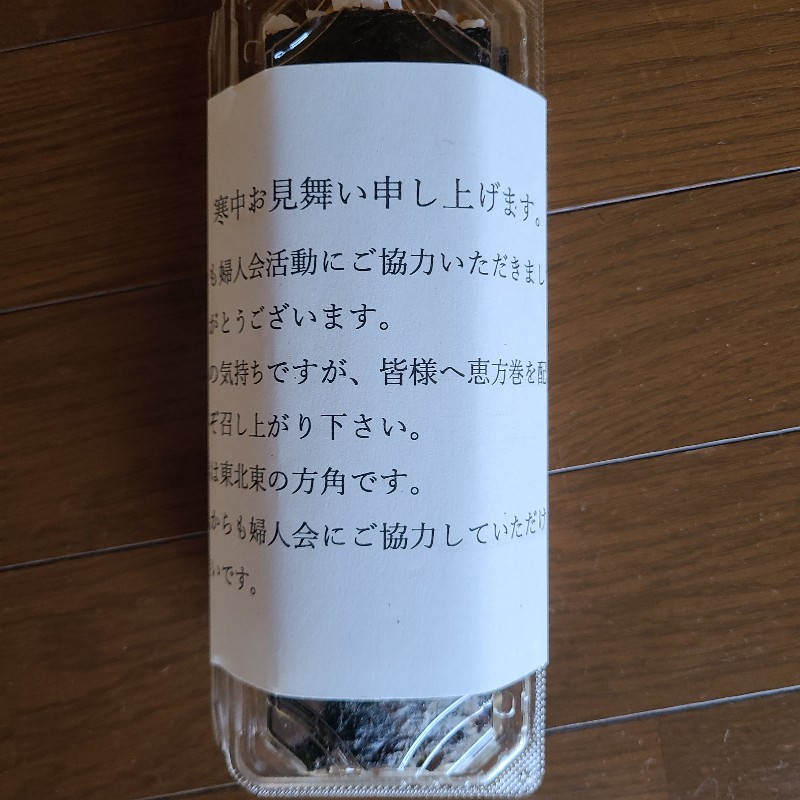 寒中お見舞い申し上げます。
も婦人会活動にご協力いただきまし
がとうございます。
の気持ちですが、皆様へ恵方巻を配
ぞ召し上がり下さい。
は東北東の方角です。
からも婦人会にご協力していただけ
いです。